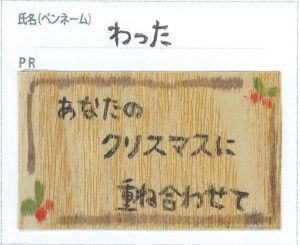 氏名(ペンネーム)
わった
PR
あなたの
クリスマスに
重ね合わせて